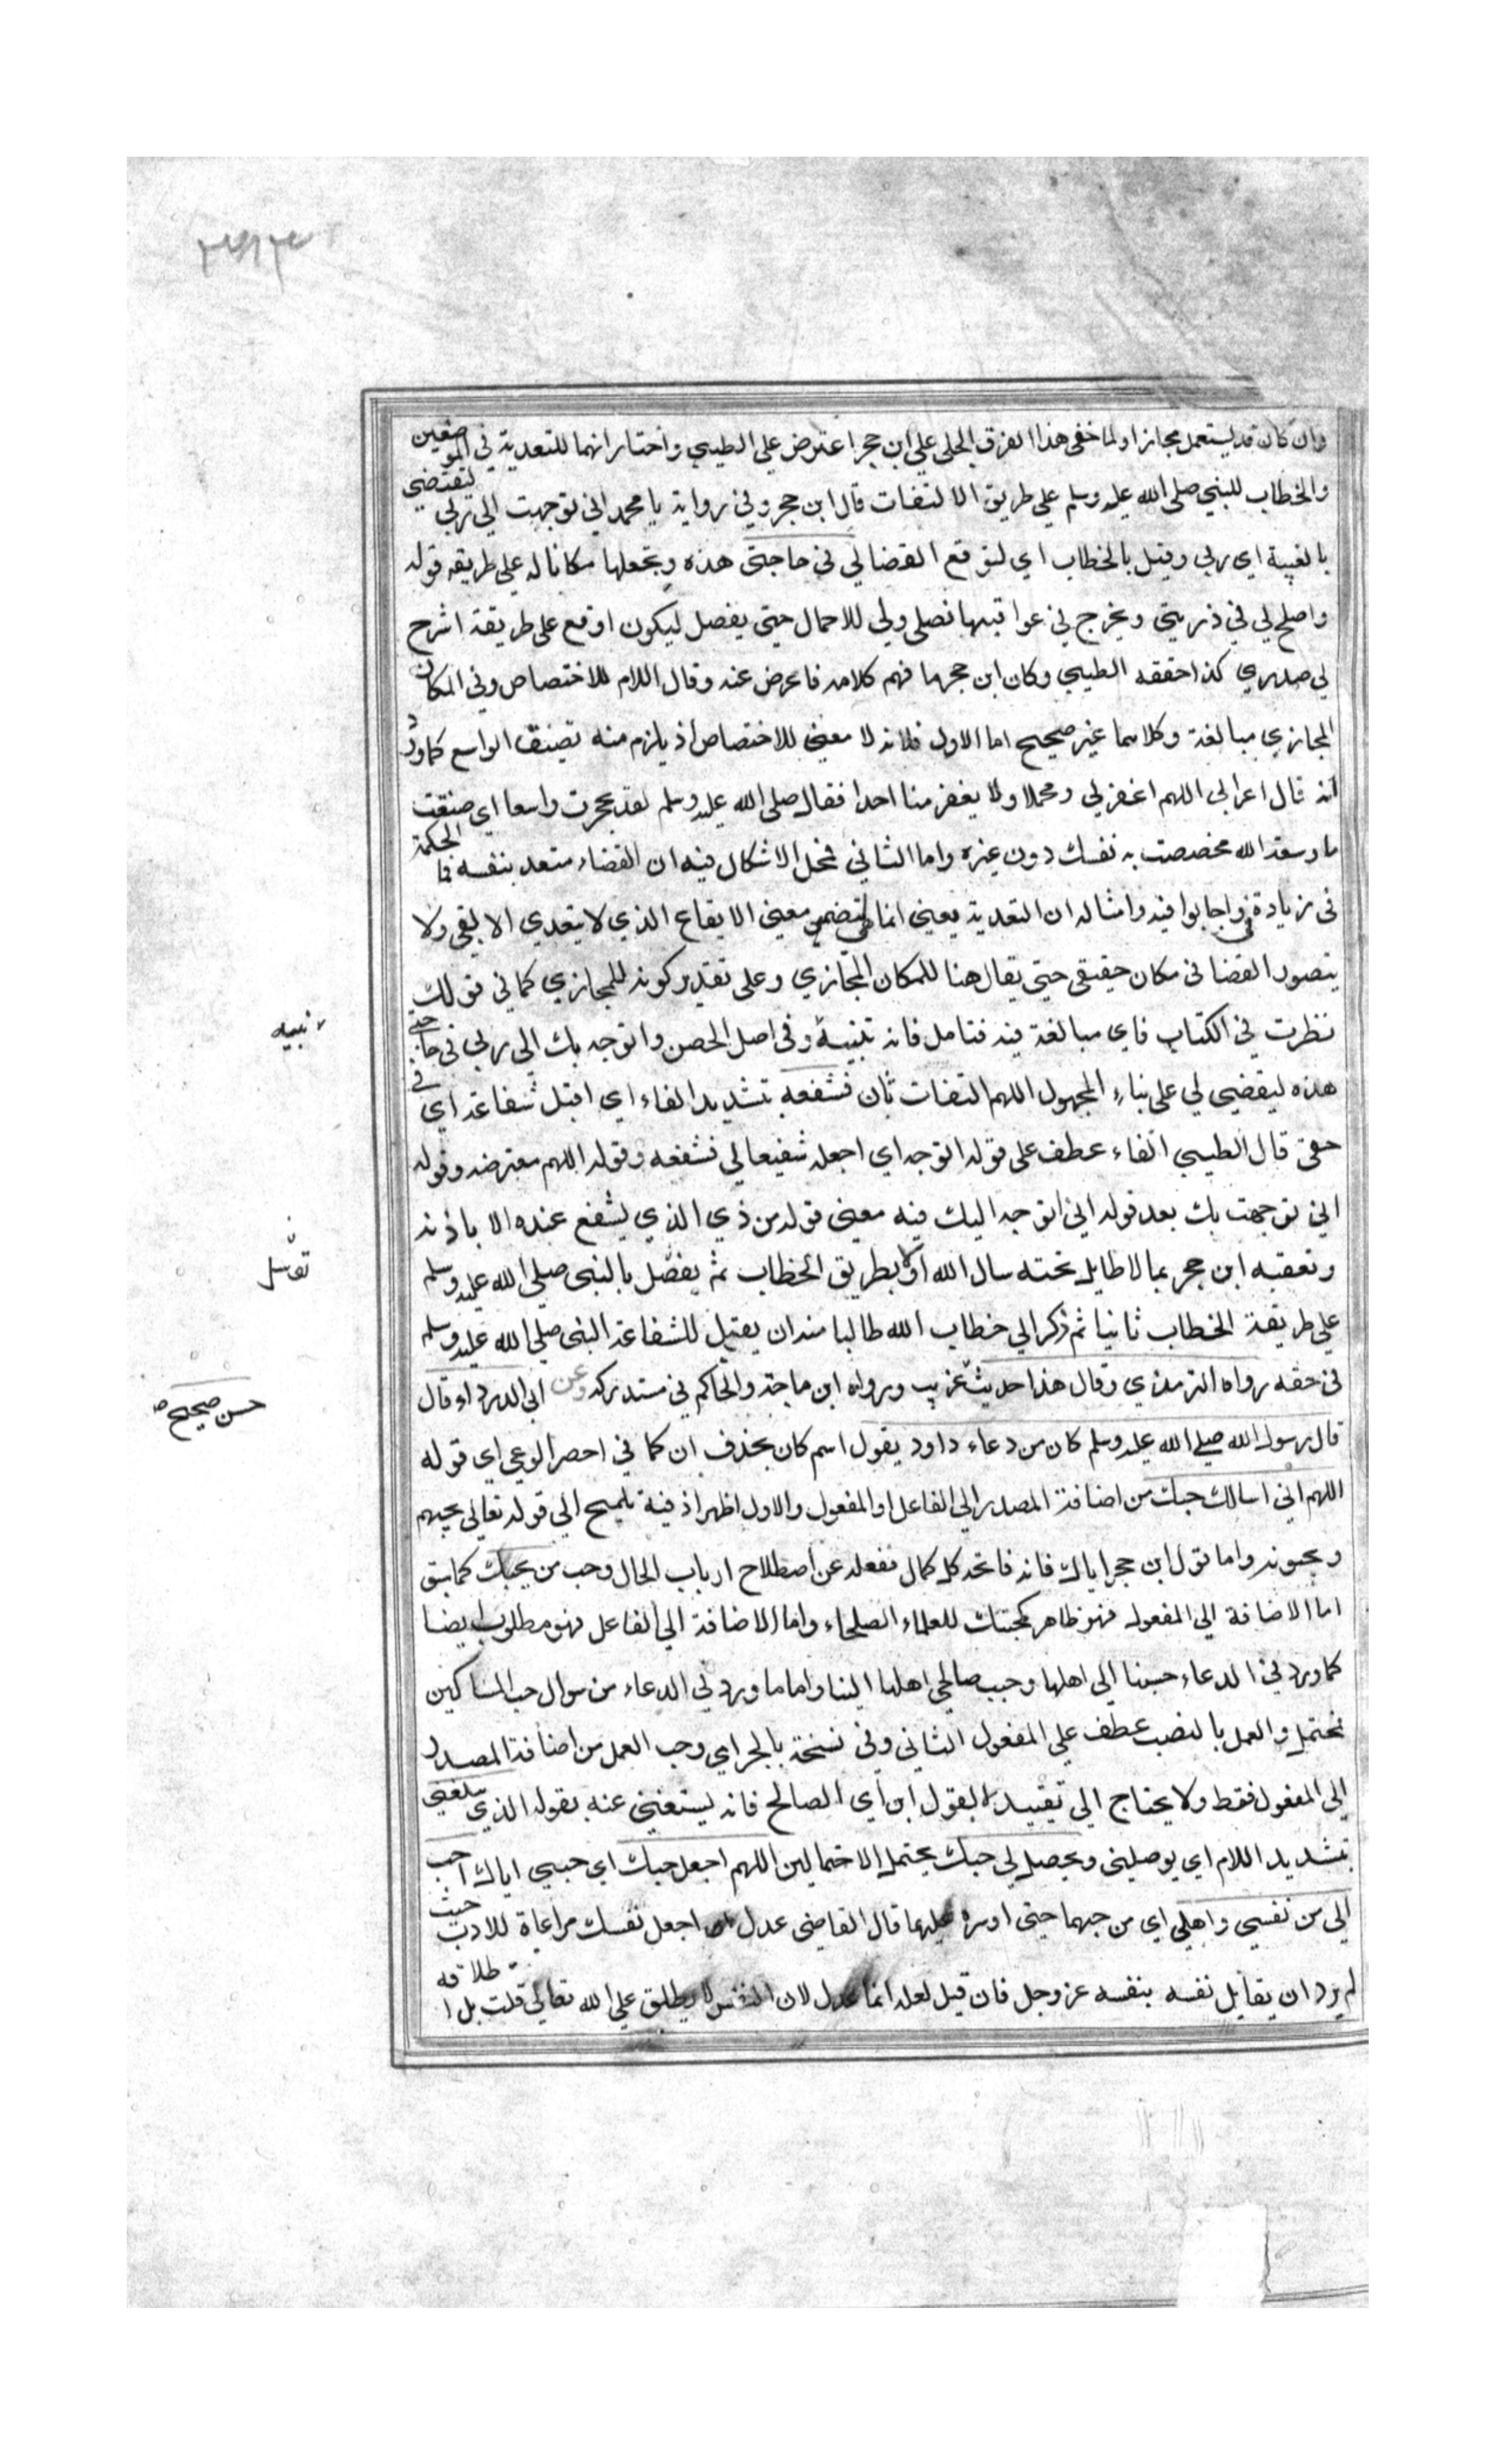 وان كان قد يستعمل مجازا ولما خفى هذا الفرق الجلى على ابن حجر اعترض على الطيبي واختار انهما للتعدية في الموضعين
والخطاب للنبي صلى الله عليه وسلم على طريق الالتفات قال ابن حجر وفي رواية يا محمد اني توجهت الى ربي ليقضي
بالغيبة اي ربي وقيل بالخطاب اي لتوقع القضا لي في حاجتي هذه ويجعلها مكانا له على طريقه قوله
واصلح لي في ذريتي ويخرج في عواقبها نصلى ولي للاجمال حتى يفصل ليكون اوقع على طريقة اشرح
لي صدري كذا حققه الطيبي وكان ابن حجر ما فهم كلامه فاعرض عنه وقال اللام للاختصاص وفي المكان
المجازي مبالغة وكلاهما غير صحيح اما الاول فلانه لا معنى للاختصاص اذ يلزم منه تضيق الواسع كما ورد
انه قال اعرابي اللهم اغفر لي ومحمدا ولا يغفر منا احدا فقال صلى الله عليه وسلم لقد حجرت واسعا اي ضيقت
ما وسعه الله فخصصت به نفسك دون غيره واما الثاني فمحل الاشكال فيه ان القضاء متعد بنفسه فما الحكمة
في زيادة في واجابوا فيه وامثاله ان التعدية بفي انما لتضمن معنى الايقاع الذي لا يتعدي الا بفي ولا
يتصور القضا في مكان حقيقي حتى يقال هنا للمكان المجازي وعلى تقدير كونه للمجازي كما في قولك
نظرت في الكتاب فاي مبالغة فيه فتامل فانه تنبيه وفي اصل الحصن واتوجه بك الى ربي في حاجتي
هذه ليقضي لي على بناء المجهول اللهم التفات ثان فشفعه بتشديد الفاء اي اقبل شفاعته اي في
حقي قال الطيبي الفاء عطف على قوله اتوجه اي اجعله شفيعا لي فشفعه وقوله اللهم معترضه وقوله
اني توجهت بك بعد قوله اني اتوجه اليك فيه معنى قوله من ذي الذي يشفع عنده الا باذنه
وتعقبه ابن حجر بما لا طايل تحته سال الله اولا بطريق الخطاب ثم يفضل بالنبي صلى الله عليه وسلم
على طريقة الخطاب ثانيا ثم ذكر الي خطاب الله طالبا منه ان يقبل للشفاعة النبي صلى الله عليه وسلم
في حقه رواه الترمذي وقال هذا حديث غريب ورواه ابن ماجة والحاكم في مستدركه وعن ابي الدرداء قال
قال رسول الله صلى الله عليه وسلم كان من دعاء داود يقول اسم كان بحذف ان كما في احضر الوعى اي قوله
اللهم اني اسالك حبك من اضافة المصدر الى الفاعل او المفعول والاول اظهر اذ فيه تلميح الي قوله تعالى يحبهم
ويحبونه واما تقول ابن حجر اياك فانه فاتحه كل كمال فغفله عن اصطلاح ارباب الحال وحب من يحبك كما سبق
اما الاضافة الي المفعول فهو ظاهر كمحبتك للعلماء الصلحاء واما الاضافة الي الفاعل فهو مطلوب ايضا
كما ورد في الدعاء حببنا الي اهلها وحبب صالحي اهلها الينا واما ما ورد في الدعاء من سوال حب المساكين
فمحتمل والعمل بالنصب عطف على المفعول الثاني وفي نسخة بالجر اي وحب العمل من اضافة المصدر
الى المفعول فقط ولا يحتاج الى تقييد القول اي الصالح فانه يستغنى عنه بقوله الذي يبلغني
بتشديد اللام اي يوصلني ويحصل لي حبك يحتمل الاحتمالين اللهم اجعل حبك اي حبي اياك احب
الي من نفسي واهلي اي من حبهما حتى اوثره عليهما قال القاضي عدل اجعل نفسك مراعاة للادب حيث
لم يرد ان يقابل نفسه بنفسه عز وجل فان قيل لعله انما عدل لان النفس لا يطلق على الله تعالى قلت بل اطلاقه
تنبيه
توسل
حسن صحيح